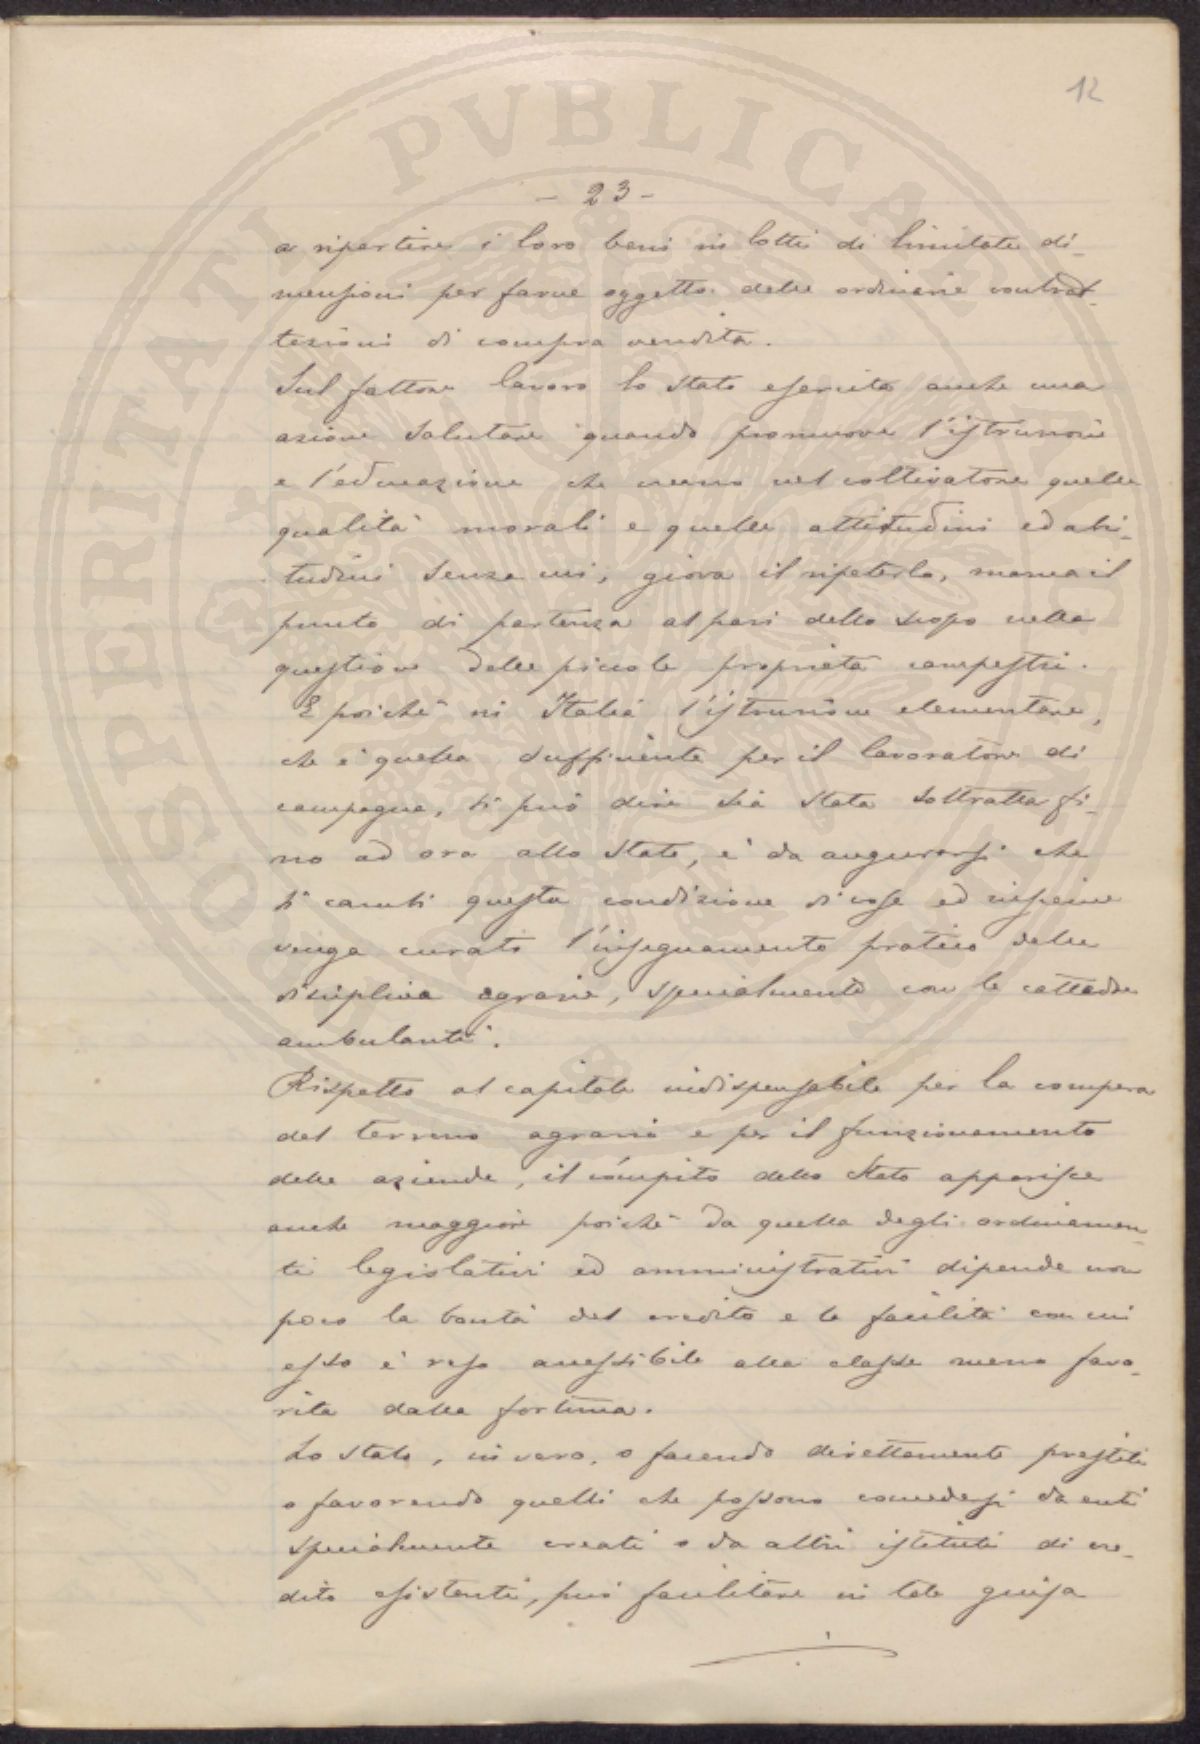 12
- 23 -
a ripartire i loro beni in lotti di limitate di-
mensioni per farne oggetto delle ordinarie contrat-
tazioni di compra vendita.
Sul fattore lavoro lo Stato esercita anche una
azione salutare quando promuove l'istruzione
e l'educazione che creano nel coltivatore quelle
qualità morali e quelle attitudini ed abi-
tudini senza cui, giova il ripeterlo, manca il
punto di partenza al pari dello scopo nella
questione delle piccole proprietà campestri.
E poichè in Italia l'istruzione elementare,
che è quella sufficiente per il lavoratore di
campagna, si può dire sia stata sottratta fi-
no ad ora allo Stato, è da augurarsi che
si cambi questa condizione di cose ed insieme
venga curato l'insegnamento pratico delle
discipline agrarie, specialmente con le cattedre
ambulanti.
Rispetto al capitale indispensabile per la compera
del terreno agrario e per il funzionamento
delle aziende, il còmpito dello Stato apparisce
anche maggiore poichè da quella degli ordinamen-
ti legislativi ed amministrativi dipende non
poco la bontà del credito e la facilità con cui
esso è reso accessibile alla classe meno favo-
rita dalla fortuna.
Lo Stato, in vero, o facendo direttamente prestiti
o favorendo quelli che possono concedersi da enti
specialmente creati o da altri istituti di cre-
dito esistenti, può facilitare in tale guisa
PROSPERITATI PVBLICAE